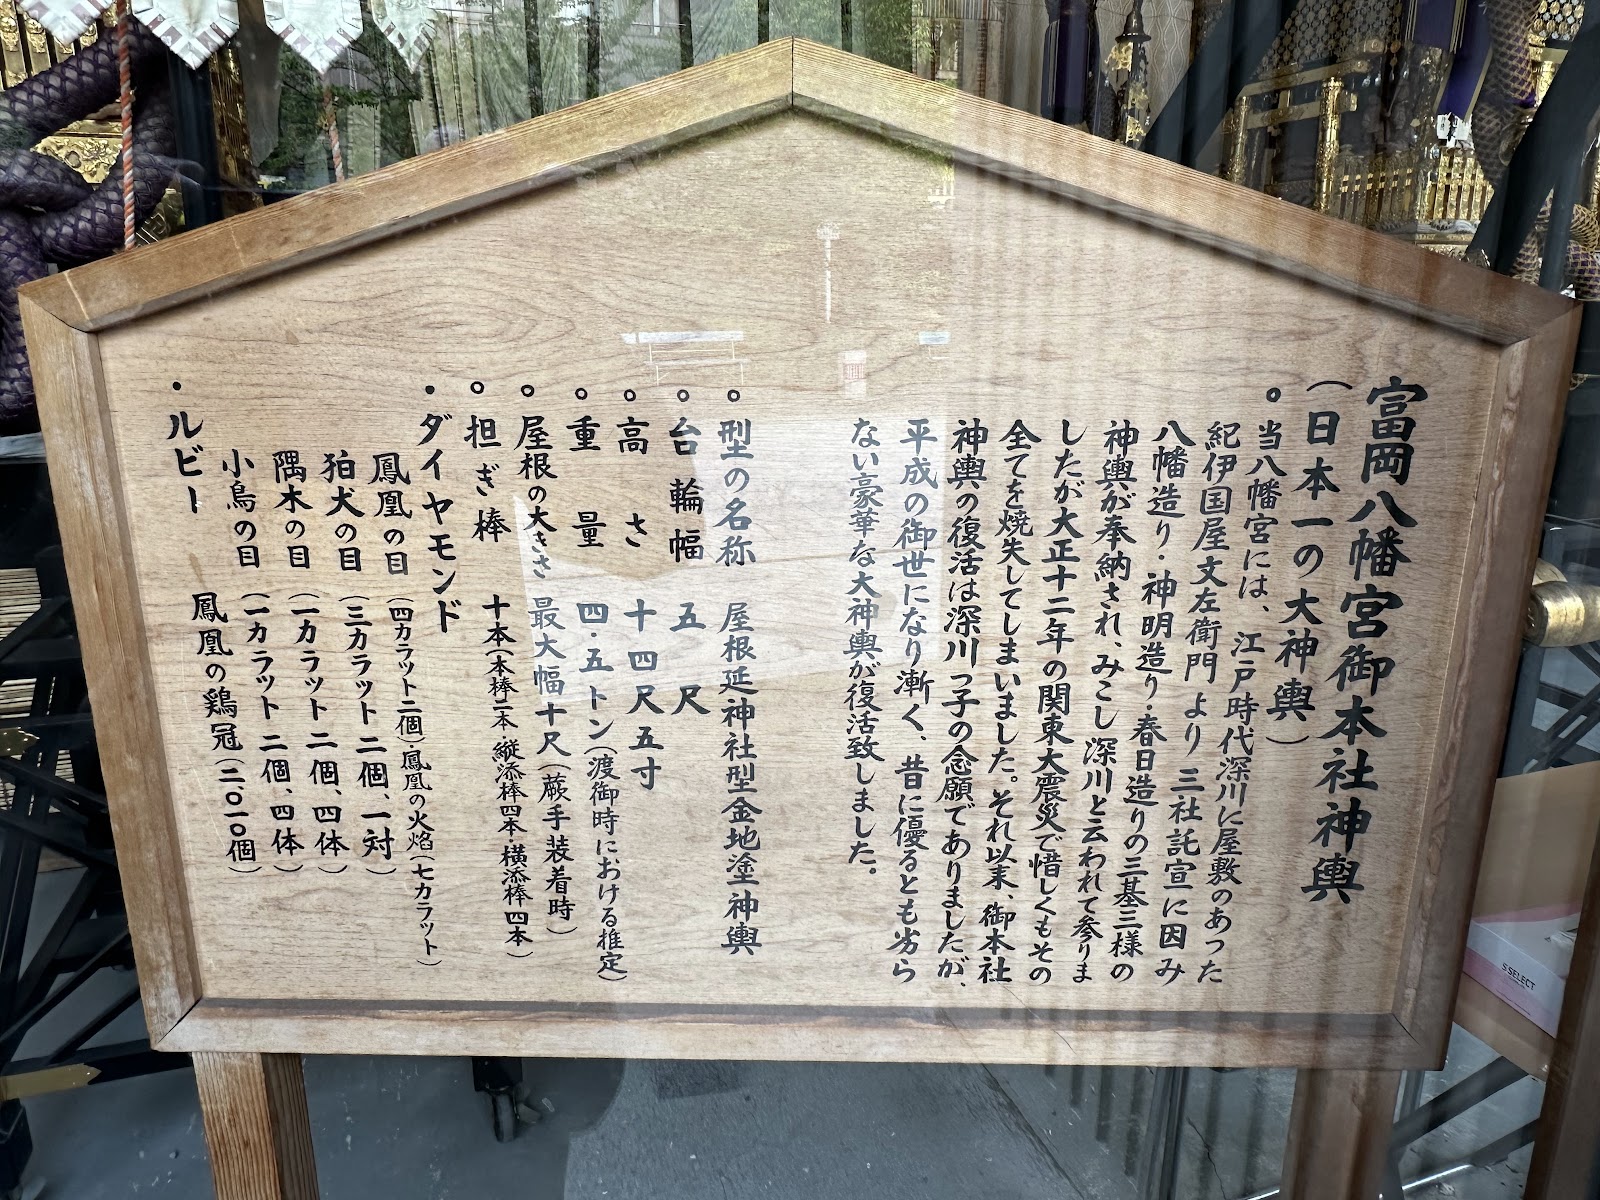 富岡八幡宮御本社神輿
(日本一の大神輿)
。当八幡宮には、江戸時代深川に屋敷のあった
紀伊国屋文左衛門より三社託宣に因み
八幡造り・神明造り・春日造りの三基三様の
神輿が奉納され、みこし深川と云われて参りま
したが大正十二年の関東大震災で惜しくもその
全てを焼失してしまいました。それ以来、御本社
神輿の復活は深川っ子の念願でありましたが、
平成の御世になり漸く、昔に優るとも劣ら
ない豪華な大神輿が復活致しました。
。型の名称 屋根延神社型金地塗神輿
。台輪幅 五尺
。高さ 十四尺五寸
。重量 四・五トン(渡御時における推定)
。屋根の大きさ 最大幅十尺(蕨手装着時)
。担ぎ棒 十本(本棒二本・縦添棒四本・横添棒四本)
・ダイヤモンド
鳳凰の目(四カラット二個)・鳳凰の火焰(七カラット)
狛犬の目(三カラット二個、一対)
隅木の目(一カラット二個、四体)
小鳥の目(一カラット二個、四体)
・ルビー 鳳凰の鶏冠(二、〇一〇個)
S SELECT